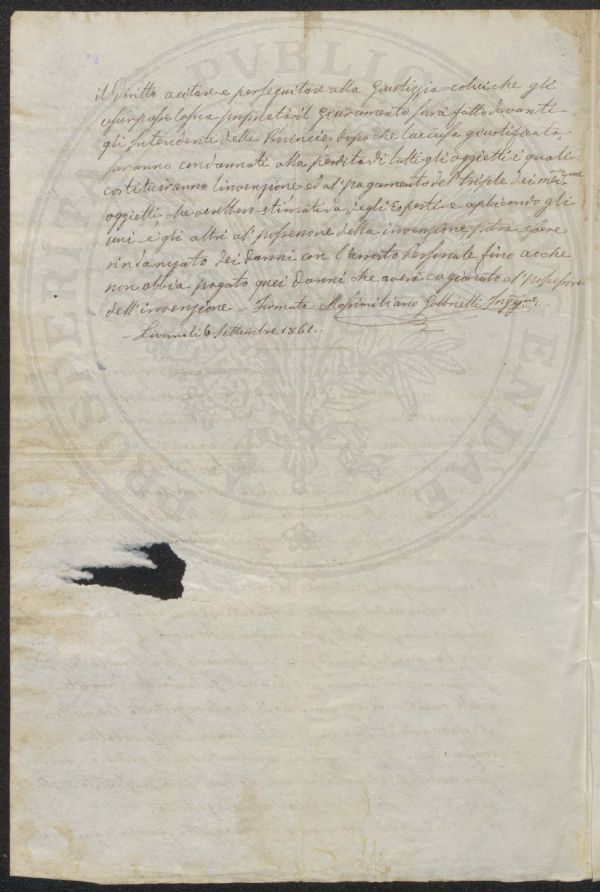 il Diritto a citare e perseguitare alla Giustizzia colui che gli
usurpasse la sua proprietà il Giuramento sarà fatto davanti
gli Intendenti delle Provincie dopo che l'accusa giustificata
saranno condannati alla perdita di tutti gli oggietti i quali
costituiranno l'invenzione ed al pagamento del triple dei med.mi
oggietti che verebbero stimati da degli Esperti e aplicendo gli
uni e gli altri al possessore della invenzione potrà essere
rindanjato dei danni con l'arresto Personale fino a che
non abbia pagato quei Danni che averà cagionato al possessore
dell'invenzione - Firmato - Massimiliano Gabbrielli Ingeg.re
- Livorno li 6 Settembre 1861.
PVBLICAE
PROSPERITATI
AVGENDAE